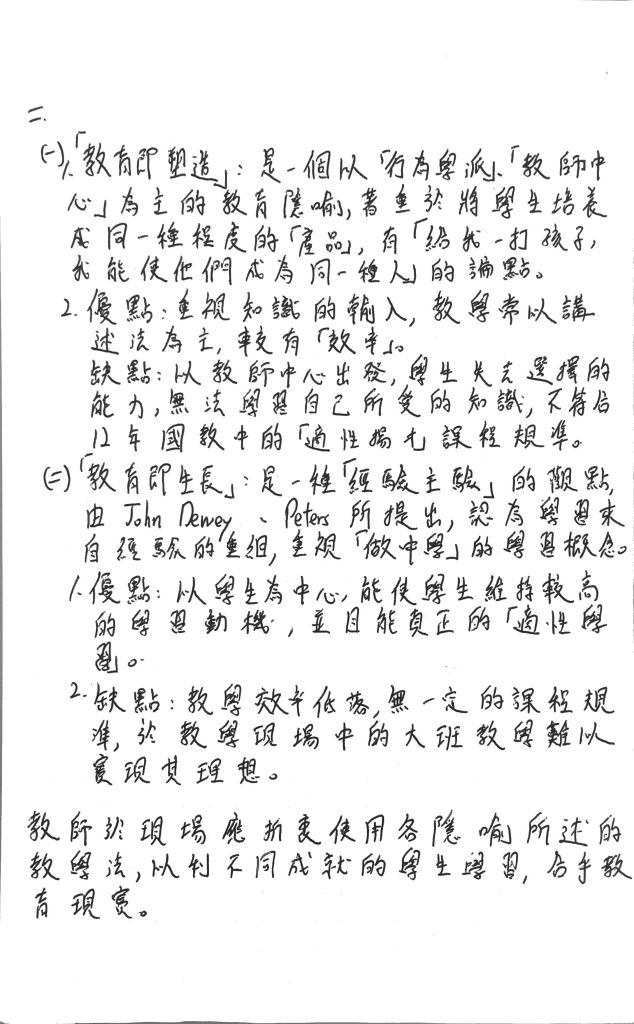 二.
(一) 1.「教育即塑造」: 是一個以「行為學派」、「教師中
心」為主的教育隱喻, 著重於將學生培養
成同一種程度的「產品」, 有「給我一打孩子,
我能使他們成為同一種人」的論點。
2. 優點: 重視知識的輸入, 教學常以講
述法為主, 較有「效率」。
缺點: 以教師中心出發, 學生失去選擇的
能力, 無法學習自己所愛的知識, 不符合
12年國教中的「適性揚才」課程規準。
(二)「教育即生長」: 是一種「經驗主驗」的觀點,
由 John Dewey、Peters 所提出, 認為學習來
自經驗的重組, 重視「做中學」的學習概念。
1. 優點: 以學生為中心, 能使學生維持較高
的學習動機, 並且能真正的「適性學
習」。
2. 缺點: 教學效率低落, 無一定的課程規
準, 於教學現場中的大班教學難以
實現其理想。
教師於現場應折衷使用各隱喻所述的
教學法, 以利不同成就的學生學習, 合乎教
育現實。